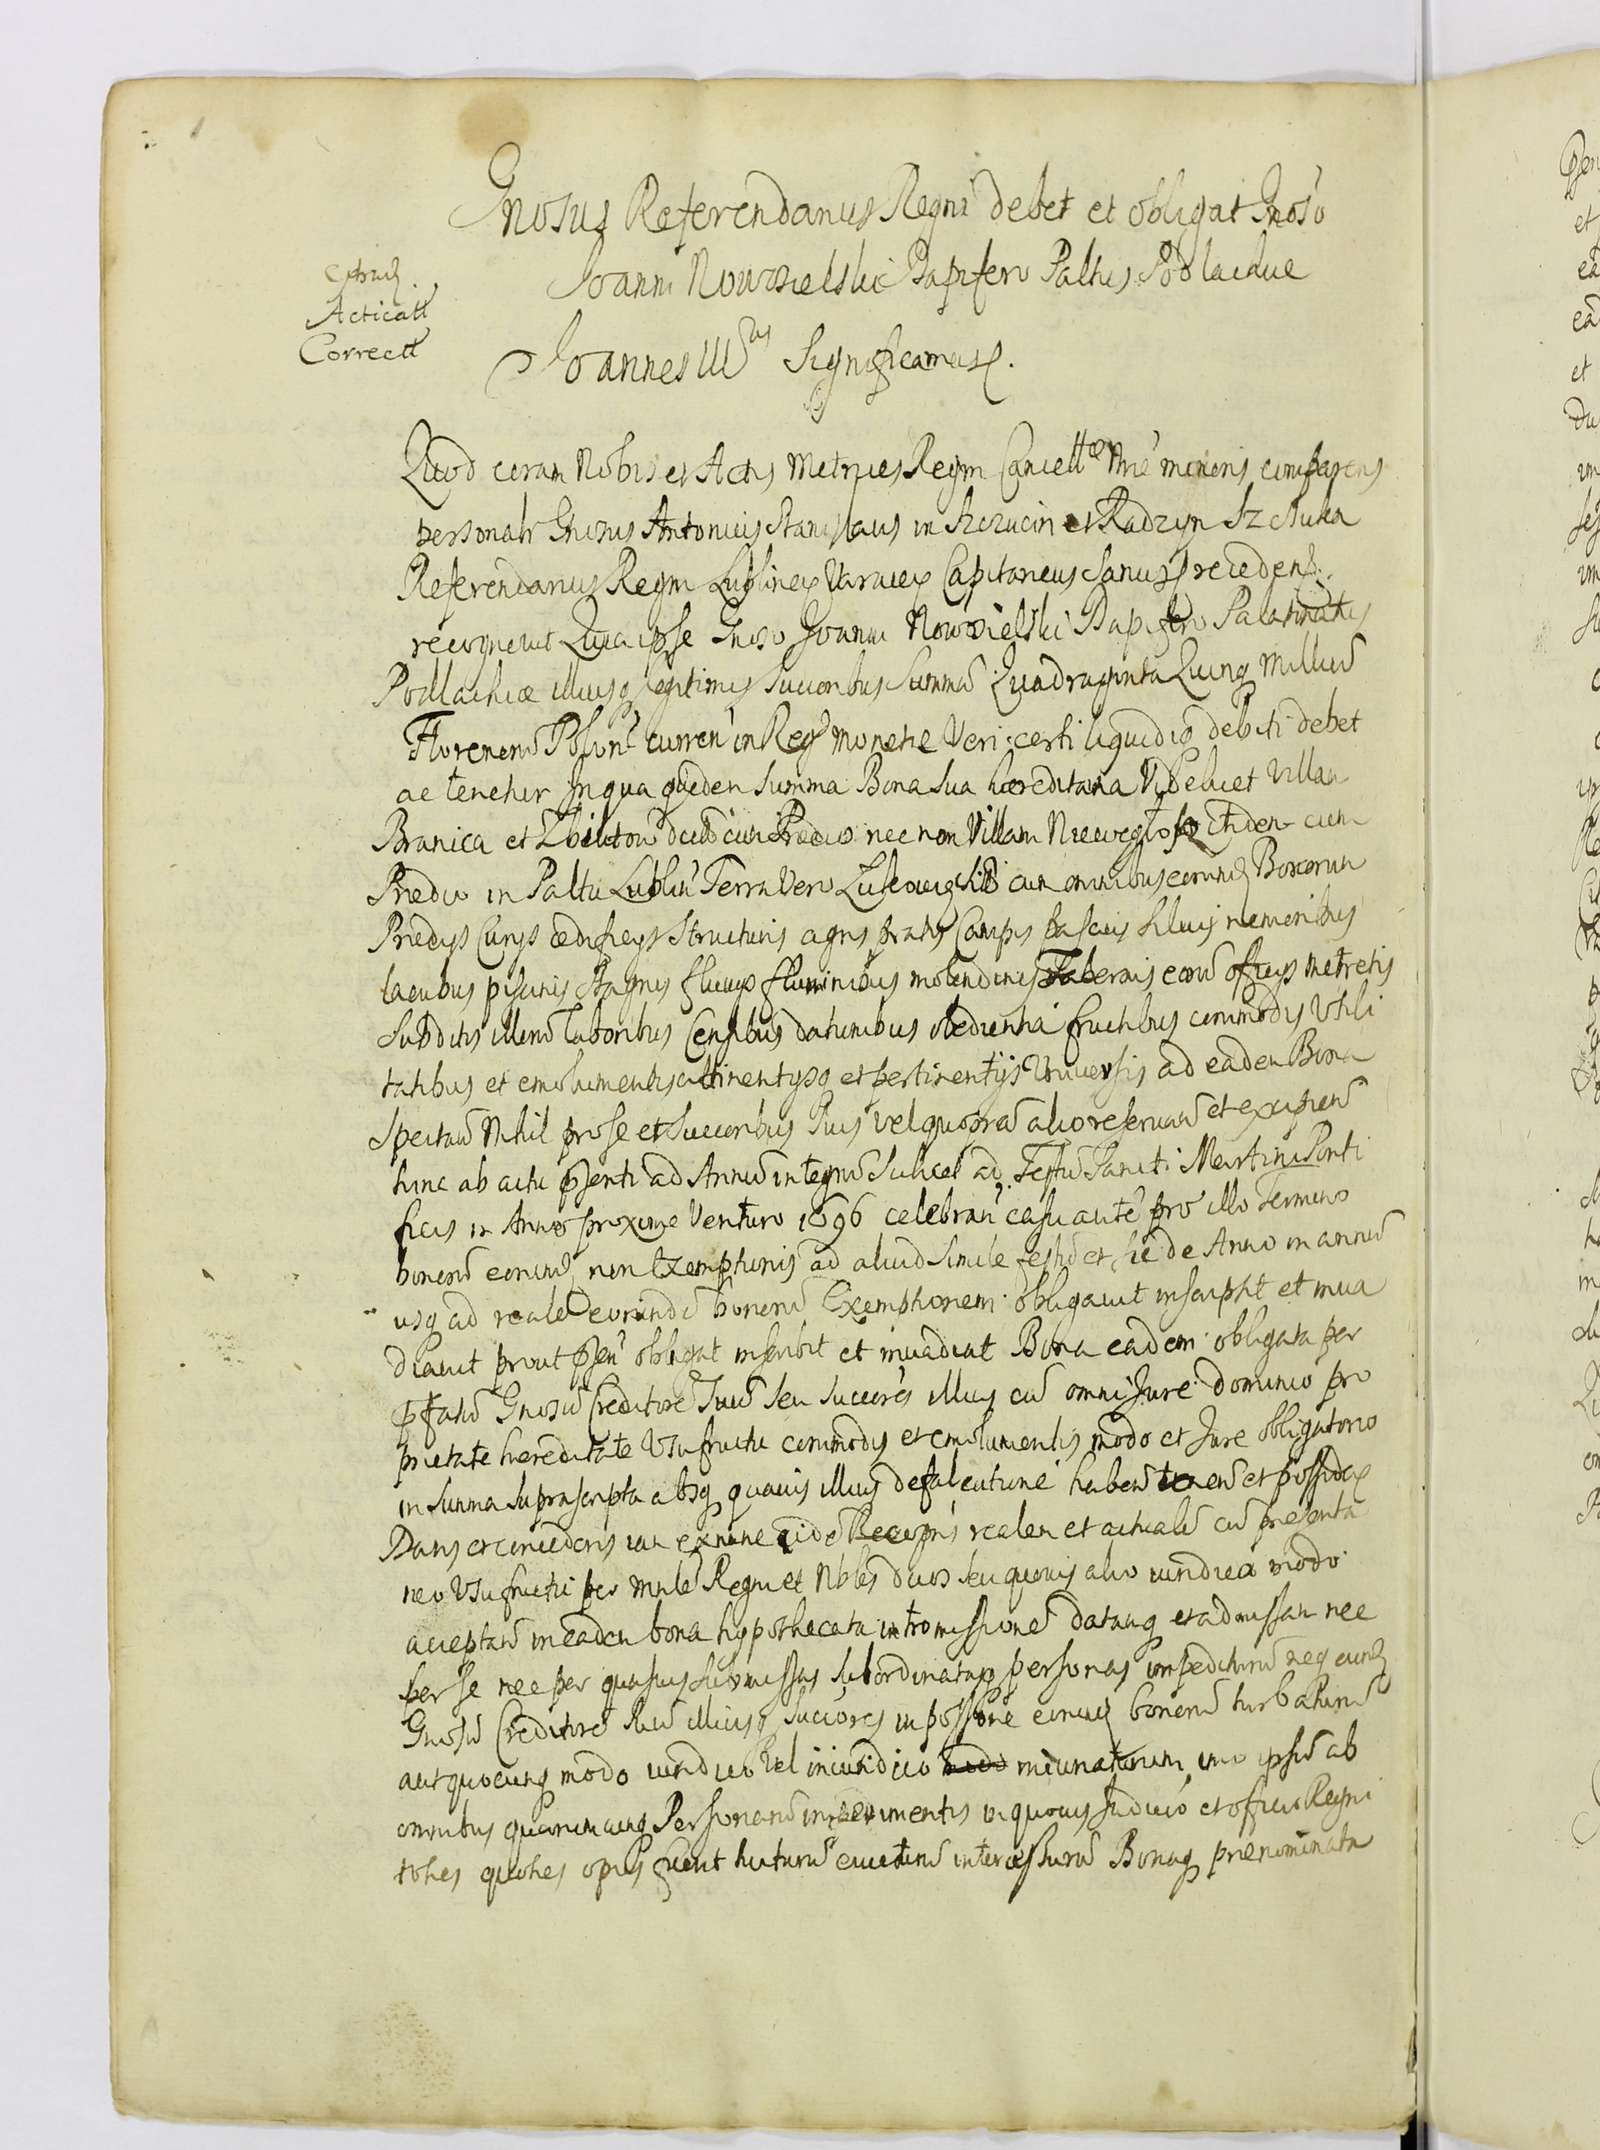 Gnosus Referendarius Regni debet et obligat Gnoso
Joanni Nowosielski Dapifero Paltus Podlachiae
Acticatt
Correctt
Joannes III tius Significamusq.
Quod coram Nobis et Actis Metrices Regni Cancellae Mrae minoris comparens
personalr Gnosus Antonius Stanislaus in Szczucin et Radzyn Szczuka
Referendarius Regni Lublinen Varecen Capitaneus Sanus recedens
recognovit Quia ipse Gnoso Joanni Nowosielski Dapifero Palatinatus
Podlachiae illiusq legitimis succoribus summã Quadraginta Quinq Milliũ
Florenorũ Polon curren in Regno monetae veri certi liquidiq debiti debet
ac tenetur In qua quidem summa Bona sua haereditaria Videlicet Villam
Branica et cum Predio nec non Villam ibidem cum
Predio in Paltu Lublin Terra vero Lukovien cum omnibus eorund Bonorum
Predijs Curijs aedificijs structuris agris pratis Campis pascuis silvis nemoribus
lacubus piscinis stagnis fluvijs fluminibus molendinis Tabernis eorũ officijs metretis
subditis illorũ laboribus Censibus dationibus obedientia fructibus commodis Utili
tatibus et emolumentis attinentijsq et pertinentijs Universis ad eadem Bona
spectan Nihil pro se et succoribus suis vel quopiã alio reservan et excipien
hinc ab actu psenti ad Annũ integrũ scilicet ad Festũ Sancti Martini Ponti
ficis in Anno proxime Venturo 1696 celebran casu autẽ pro illo Termino
bonorũ eorund non Exemptionis ad aliud simile festũ et sic de Anno in annũ
usq ad realẽ eorundẽ bonorũ Exemptionem obligavit inscripsit et inva
diavit prout psen obligat inscribit et invadiat Bona eadem obligata per
pfatũ Gnosũ Creditorẽ suũ seu succores illius cũ omni Jure dominio pro
prietate haereditate Usufructu commodis et emolumentis modo et Jure obligatorio
in summa suprascripta absq quavis illius defalcatione haben tenen et possiden
Dans et concedens iam ex nunc eidẽ realem et actualẽ cũ presenta
neo Usufructu per Mnlẽ Regni et Nobles duos seu quovis alio iuridico modo
acceptan in eadem bona hypothecata intromissionẽ datamq et admissam nec
per se nec per quasvis submissas subordinatasq personas impediturũ neq eund
Gnosũ Creditorẽ suũ illiusq succores in possone eorund bonorũ turbaturũ
aut quocunq modo iuridico vel iniuridico iniuriaturum imo ipsũ ab
omnibus quarumcunq Personarũ impedimentis in quovis Judicio et officio Regni
toties quoties opus fuerit tuturũ evicturũ intercessurũ Bonaq prenominata